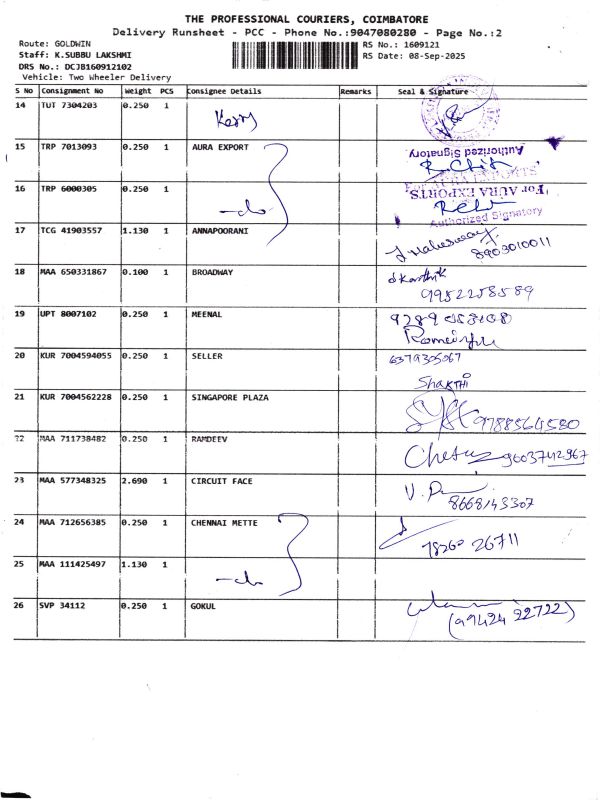 THE PROFESSIONAL COURIERS, COIMBATORE
Delivery Runsheet - PCC - Phone No.:9047080280 - Page No.:2
Route: GOLDWIN
RS No.: 1609121
Staff: K.SUBBU LAKSHMI
RS Date: 08-Sep-2025
DRS No.: DCJB160912102
Vehicle: Two Wheeler Delivery
S No Consignment No Weight PCS Consignee Details Remarks Seal & Signature
14 TUT 7304203 0.250 1
15 TRP 7013093 0.250 1 AURA EXPORT Authorized Signatory
16 TRP 6000305 0.250 1 -do For AURA EXPORTS
Authorized Signatory
17 TCG 41903557 1.130 1 ANNAPOORANI
8903010011
18 MAA 650331867 0.100 1 BROADWAY Karthik
9952258589
19 UPT 8007102 0.250 1 MEENAL
20 KUR 7004594055 0.250 1 SELLER 6379305067
SHAKTHI
21 KUR 7004562228 0.250 1 SINGAPORE PLAZA 9788564580
22 MAA 711738482 0.250 1 RAMDEEV 9603742967
23 MAA 577348325 2.690 1 CIRCUIT FACE
8668143307
24 MAA 712656385 0.250 1 CHENNAI METTE
26711
25 MAA 111425497 1.130 1 -do
26 SVP 34112 0.250 1 GOKUL
(99424 22722)